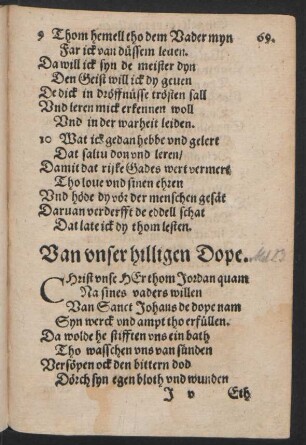 9 Thom hemell tho dem Vader myn 69.
Far ick van düssem leuen.
Da will ick syn de meister dyn
Den Geist will ick dy geuen
De dick in dröffnüsse trösten sall
Vnd leren mick erkennen woll
Vnd in der warheit leiden.
10 Wat ick gedan hebbe vnd gelert
Dat saltu don vnd leren/
Damit dat rijke Gades wert vermert
Tho loue vnd sinen ehren
Vnd höde dy vör der menschen gesät
Daruan verderfft de eddell schat
Dat late ick dy thom lesten.
Van vnser hilligen Dope.
CHrist vnse HEr thom Jordan quam
Na sines vaders willen
Van Sanct Johans de dope nam
Syn werck vnd ampt tho erfüllen.
Da wolde he stifften vns ein bath
Tho wasschen vns van sünden
Versöpen ock den bittern dod
Dörch syn egen bloth vnd wunden
J v Eth